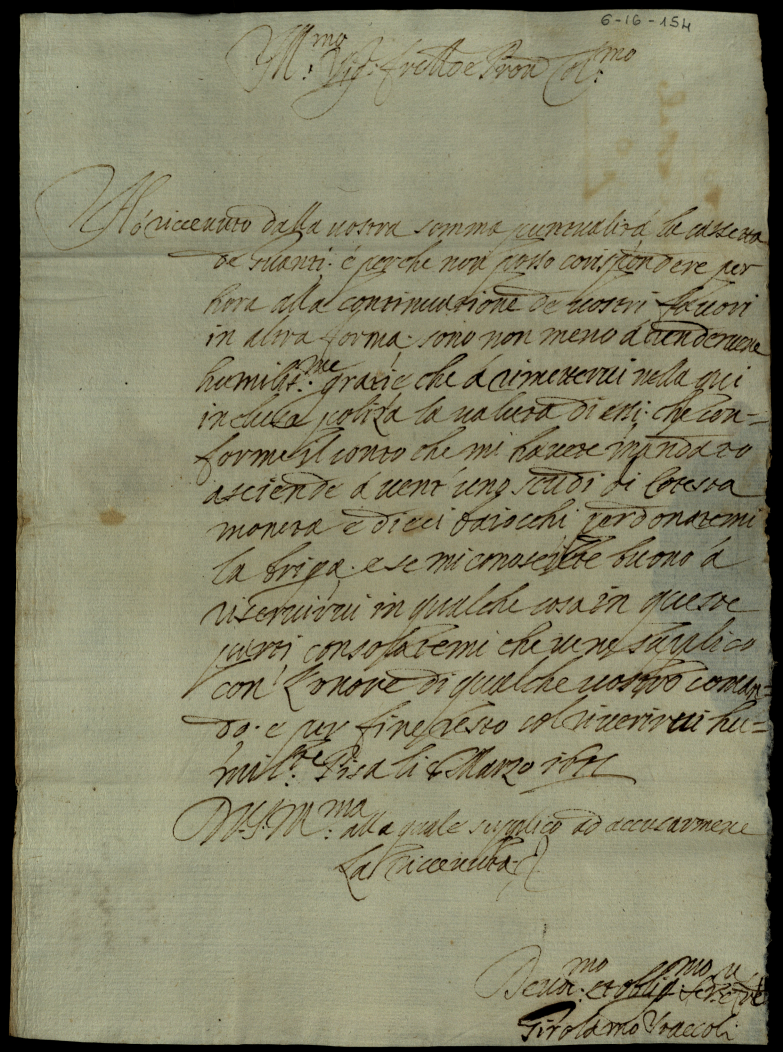 6-16-154
Ill.mo Sig.r fr.ello e Pron Col.mo
Hó riceuuto dalla uostra somma puntualità la cassetta
de Guanti. é perche non posso corispondere per
hora alla continuazione de uostri fauori
in altra forma. sono non meno á renderuene
humilis.me grazie che á rimeterui nella qui
inclusa poliza la ualuta di essi. che con=
forme il conto che mi hauete mandato
asciende á uent'uno scudi di Cotesta
moneta e dieci baiocchi perdonatemi
la briga. e se mi conoscete buono á
riseruirui in qualche cosa in queste
parti consolatemi che uene suplico
con l'onore di qualche uostro coman=
do. e per fine resto col riuerirui hu=
mil.te Pisa li Marzo
D V.S. Ill.ma alla quale suplico ad accusarmene
la riceuuta.
Deuot.mo et oblig.mo
Girolamo